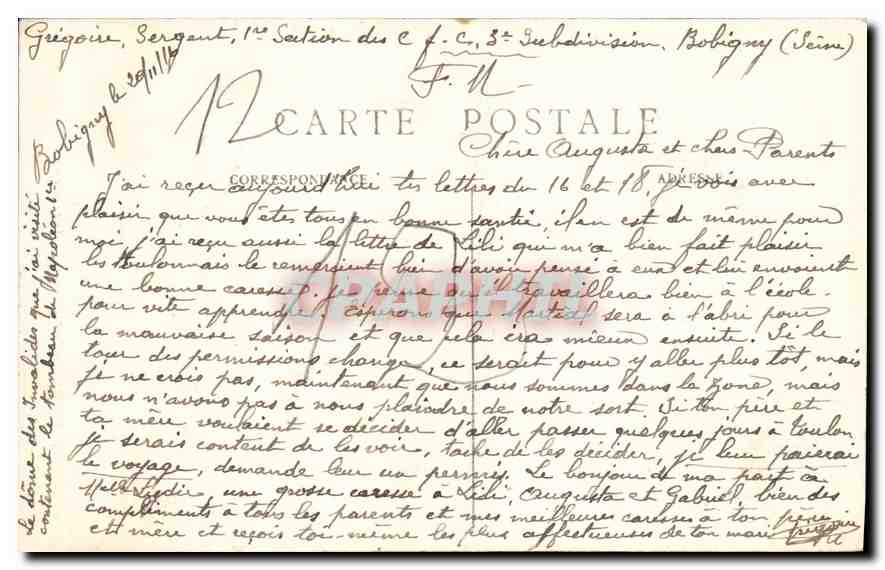 Grégoire, Sergent, 1re Section des C f. C, 3e Subdivision, Bobigny (Seine)
F. M
Bobigny le 20/11/17
12
CARTE POSTALE
CORRESPONDANCE
ADRESSE
Chère Augusta et chers Parents
J'ai reçu aujourd'hui tes lettres du 16 et 18, je vois avec
plaisir que vous êtes tous en bonne santé, il en est de même pour
moi, j'ai reçu aussi la lettre de Lili qui m'a bien fait plaisir
les toulonnais le remercient bien d'avoir pensé à eux et lui envoient
une bonne caresse. je pense qu'il travaillera bien à l'école
pour vite apprendre, espérons que Martial sera à l'abri pour
la mauvaise saison et que cela ira mieux ensuite. Si le
tour des permissions change, ce serait pour y aller plus tôt, mais
je ne crois pas, maintenant que nous sommes dans la zone, mais
nous n'avons pas à nous plaindre de notre sort. Si ton père et
ta mère voulaient se décider d'aller passer quelques jours à toulon
je serais content de les voir, tache de les décider, je leur paierai
le voyage, demande leur un permis. Le bonjour de ma part à
Melle Lydie, une grosse caresse à Lili, Augusta et Gabriel, bien des
compliments à tous les parents et mes meilleures caresses à ton père
et mère et reçois toi-même les plus affectueuses de ton mari
Grégoire
Le dôme des Invalides que j'ai visité
contenant le tombeau de Napoléon 1er